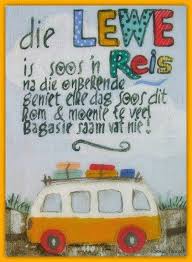 die LEWE
is soos 'n Reis
na die onbekende
geniet elke dag soos dit
kom & moenie te veel
Bagasie saam vat nie!